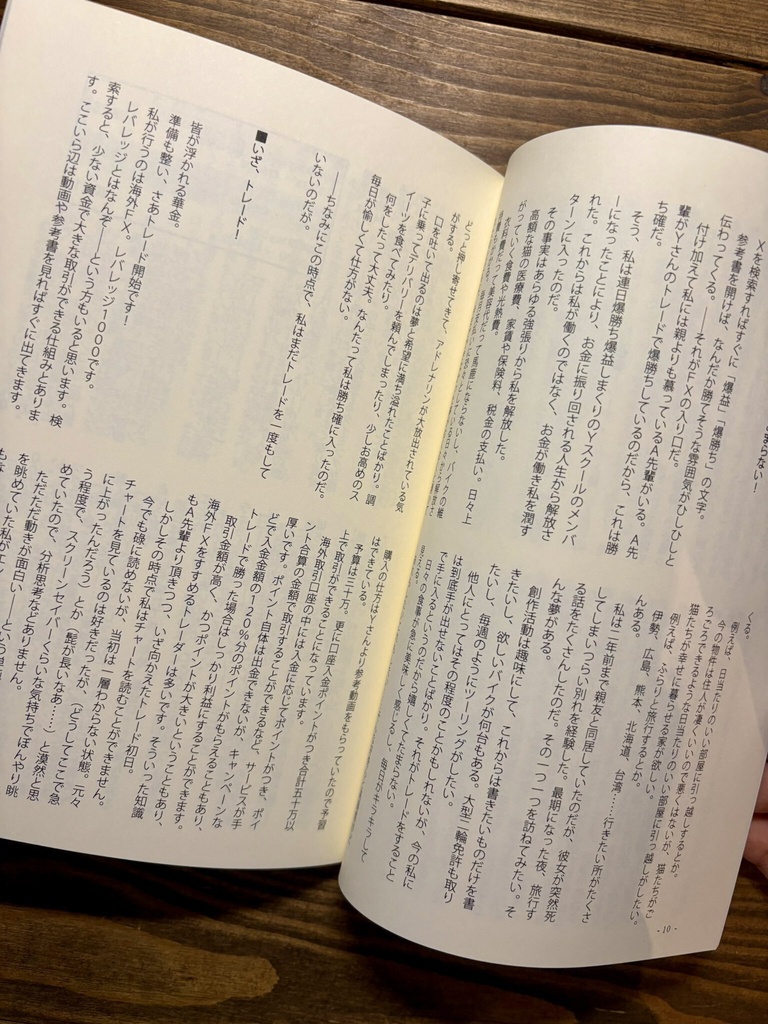 Xを検索すればすぐに「爆益」「爆勝ち」の文字。
参考書を開けば、なんだか勝てそうな雰囲気がひしひしと
伝わってくる。――それがFXの入り口だ。
付け加えて私には親よりも慕っているA先輩がいる。A先
輩がYさんのトレードで爆勝ちしているのだから、これは勝
ち確だ。
そう、私は連日爆勝ち爆益しまくりのYスクールのメンバ
ーになったことにより、お金に振り回される人生から解放さ
れた。これからは私が働くのではなく、お金が働き私を潤す
ターンに入ったのだ。
その事実はあらゆる強張りから私を解放した。
高額な猫の医療費、家賃や保険料、税金の支払い。日々上
がっていく食費や光熱費。
くる。
例えば、日当たりのいい部屋に引っ越しするとか。
今の物件は住人が凄くいいので悪くはないが、猫たちがご
ろごろできるような日当たりのいい部屋に引っ越しがしたい。
猫たちが幸せに暮らせる家が欲しい。
例えば、ふらりと旅行するとか。
伊勢、広島、熊本、北海道、台湾……行きたい所がたくさ
んある。
私は二年前まで親友と同居していたのだが、彼女が突然死
してしまいつらい別れを経験した。最期になった夜、旅行す
る話をたくさんしたのだ。その一つ一つを訪ねてみたい。そ
んな夢がある。
創作活動は趣味にして、これからは書きたいものだけを書
きたいし、欲しいバイクが何台もある。大型二輪免許も取り
たいし、毎週のようにツーリングがしたい。
他人にとってはその程度のことかもしれないが、今の私に
は到底手が出せないことばかり。それがトレードをすること
で手に入るというのだから嬉しくてたまらない。
日々の食事が急に美味しく感じるし、毎日がキラキラして
- 10 -
どっと押し寄せてきて、アドレナリンが大放出されている気
がする。
口を吐いて出るのは夢と希望に満ち溢れたことばかり。調
子に乗ってデリバリーを頼んでしまったり、少しお高めのス
イーツを食べてみたり。
何をしたって大丈夫。なんたって私は勝ち確に入ったのだ。
毎日が愉しくて仕方がない。
――ちなみにこの時点で、私はまだトレードを一度もして
いないのだが。
■いざ、トレード！
皆が浮かれる華金。
準備も整い、さあトレード開始です！
私が行うのは海外FX。レバレッジ1000です。
レバレッジとはなんぞ――という方もいると思います。検
索すると、少ない資金で大きな取引ができる仕組みとありま
す。ここいら辺は動画や参考書を見ればすぐに出てきます。
購入の仕方はYさんより参考動画をもらっていたので予習
はできている。
予算は三十万。更に口座入金ポイントがつき合計五十万以
上で取引ができることになっています。
海外取引口座の中には入金に応じてポイントがつき、ポイ
ント合算の金額で取引することができるなど、サービスが手
厚いです。ポイント自体は出金できないが、キャンペーンな
どで入金金額の120％分のポイントがもらえることもあり、
トレードで勝った場合はしっかり利益にすることができます。
取引金額が高く、かつポイントが大きいということもあり、
海外FXをすすめるトレーダーは多いです。そういった知識
もA先輩より頂きつつ、いざ向かえたトレード初日。
しかしその時点で私はチャートを読むことができません。
今でも碌に読めないが、当初は一層わからない状態。元々
チャートを見ているのは好きだったが、（どうしてここで急
に上がったんだろう）とか（髭が長いなあ……）と漠然と思
う程度で、スクリーンセイバーくらいな気持ちでぼんやり眺
めていたので、分析思考などありません。
ただただ動きが面白い――という
を眺めていた私が